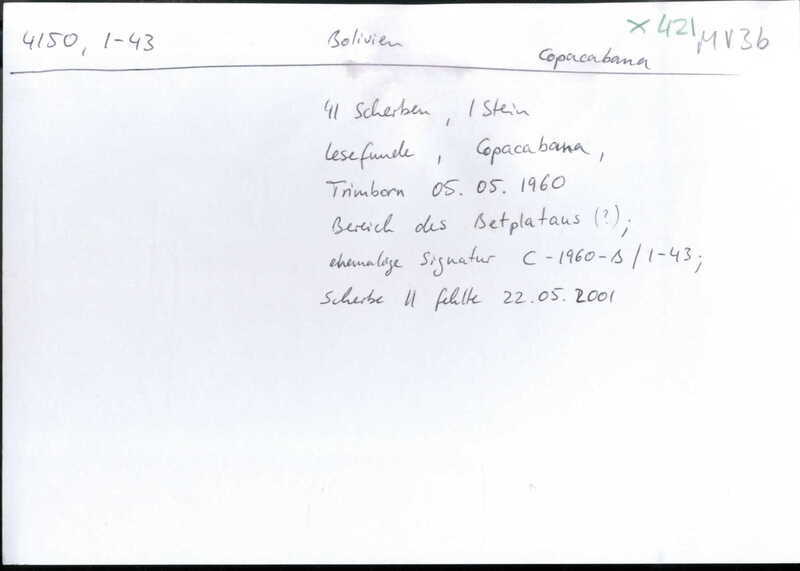 4150, 1-43 Bolivien Copacabana x 421, MV3b
41 Scherben, 1 Stein
Lesefunde, Copacabana,
Trimborn 05.05.1960
Bereich des Betplataus (?);
ehemalige Signatur C-1960-B/1-43;
Scherbe 11 fehlte 22.05.2001